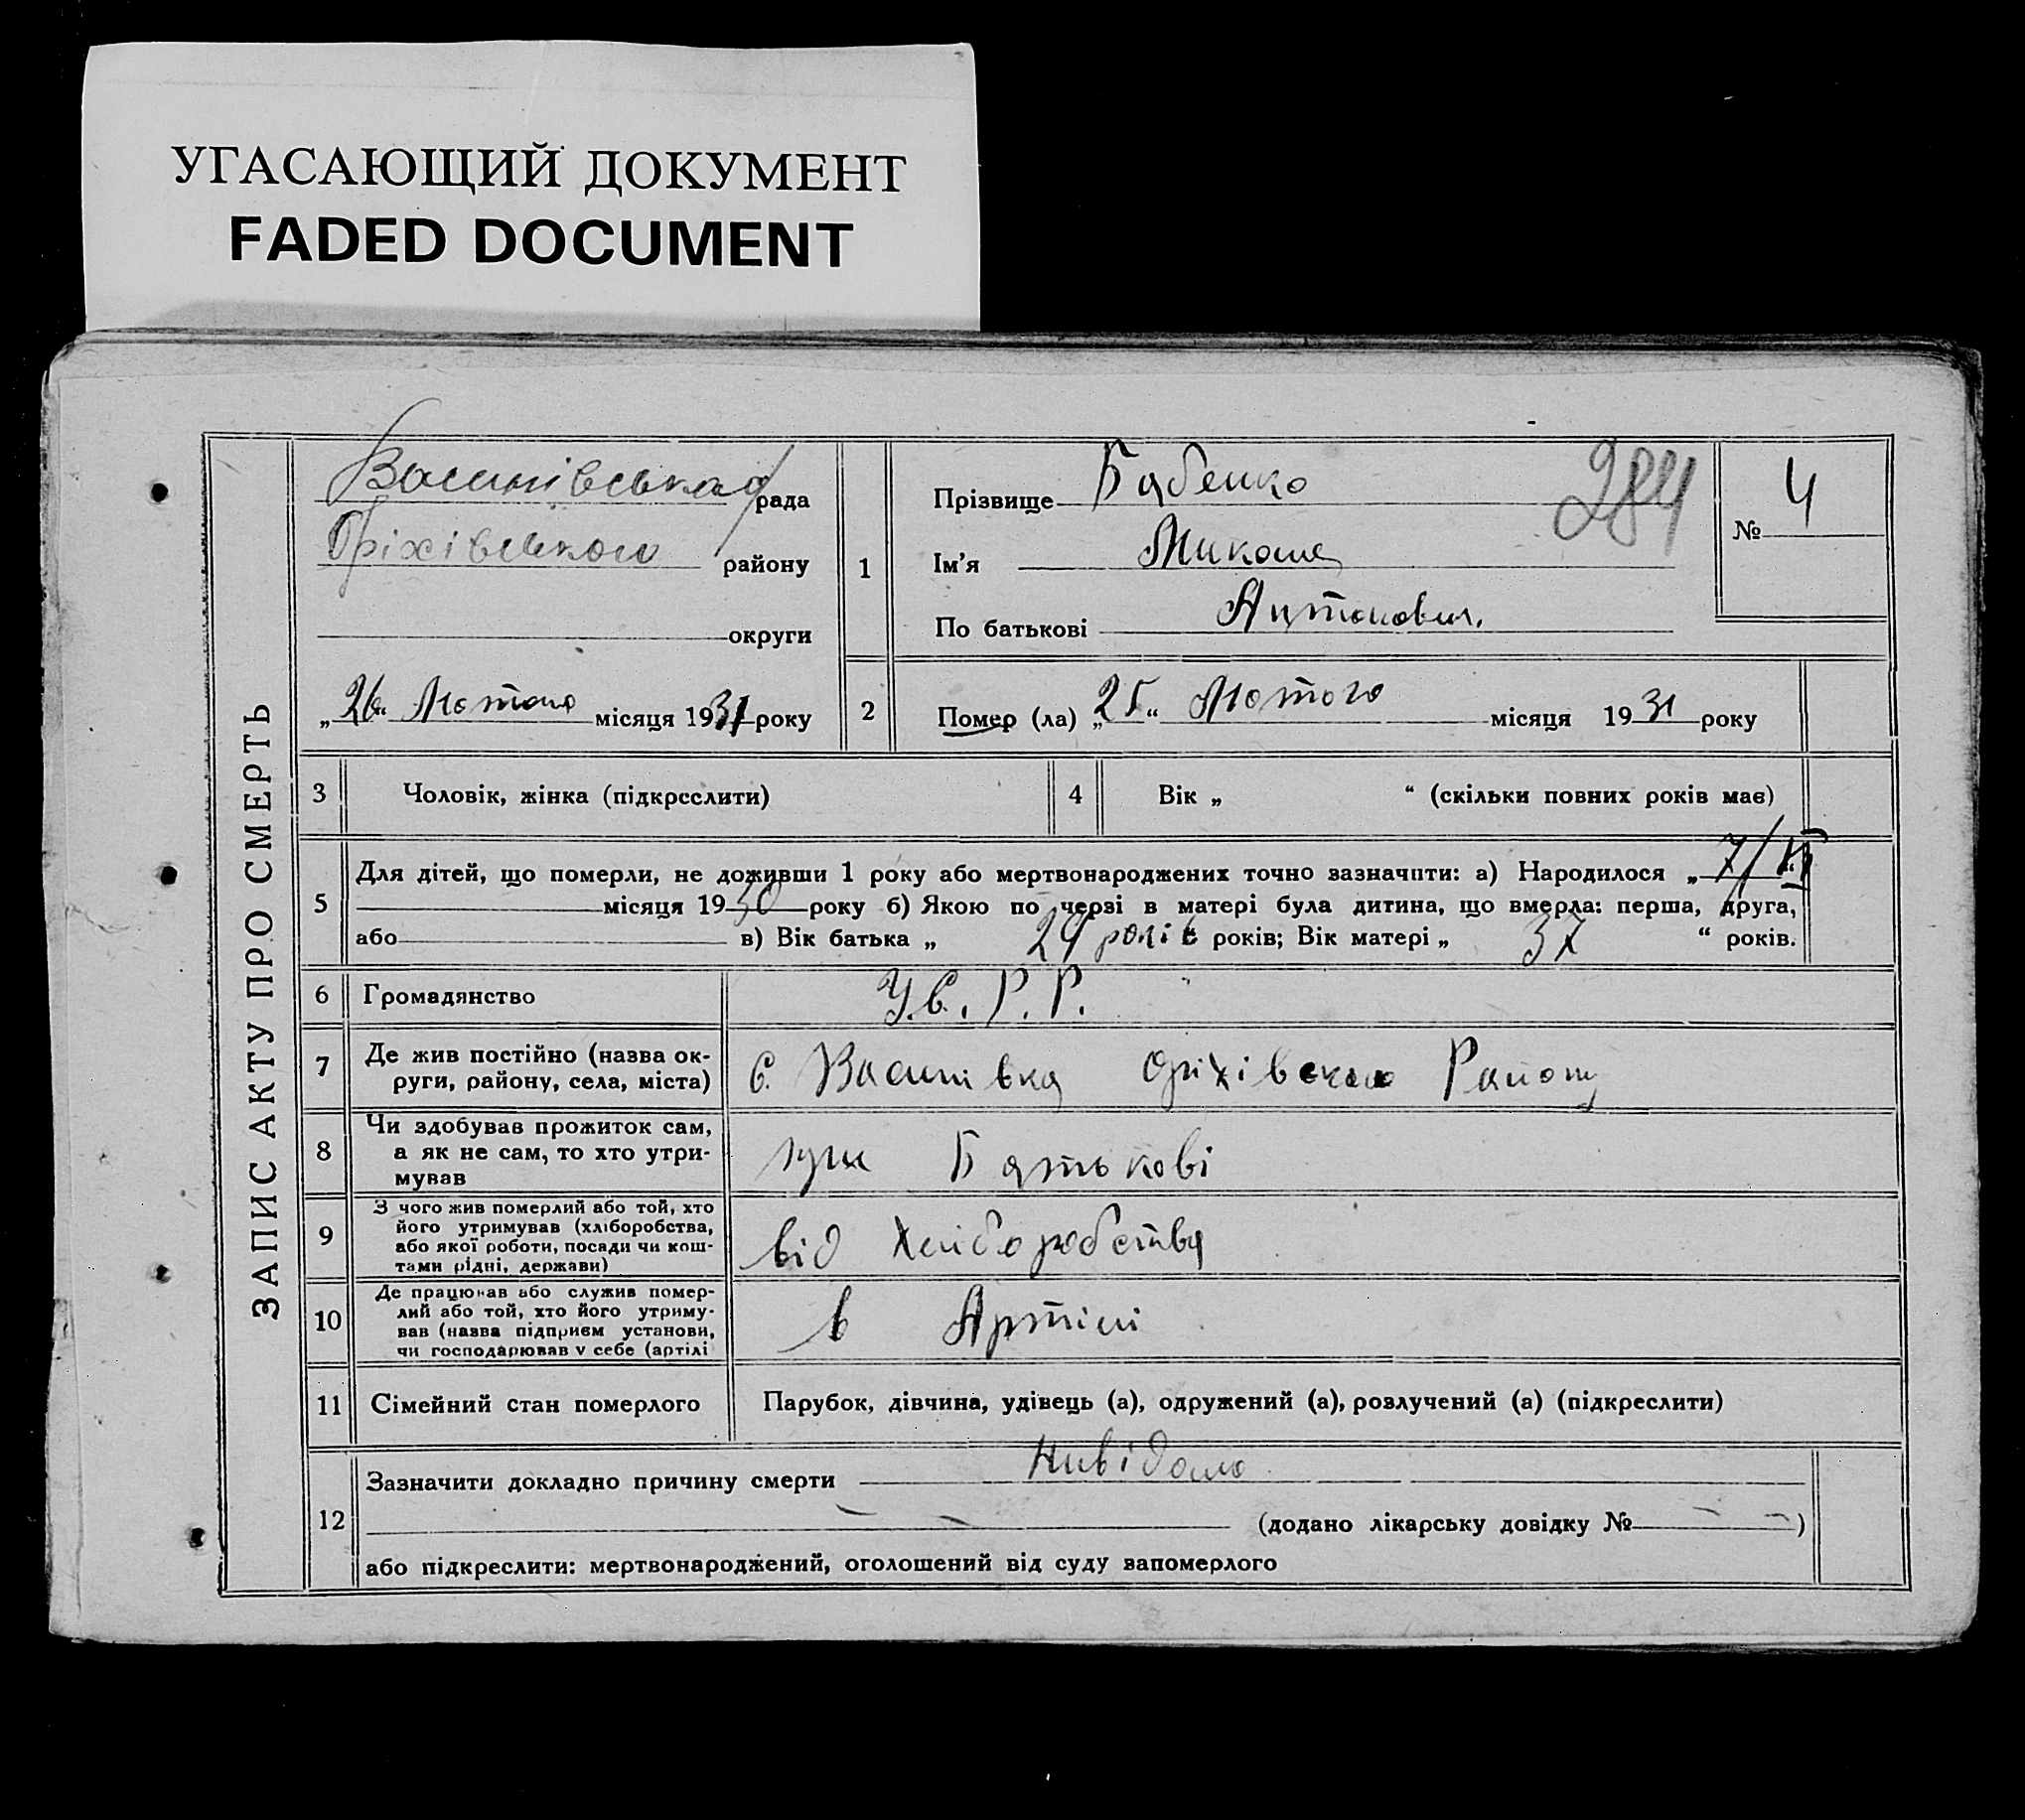 УГАСАЮЩИЙ ДОКУМЕНТ
FADED DOCUMENT
ЗАПИС АКТУ ПРО СМЕРТЬ
Василівська рада
Оріхівського району
округи
„26“ Лютого місяця 1931 року
1
Прізвище Бабенко
284
Ім'я Микола
По батькові Антонович.
№ 4
2
Помер (ла) „25“ Лютого місяця 1931 року
3 Чоловік, жінка (підкреслити)
4 Вік „ “ (скільки повних років має)
5 Для дітей, що померли, не доживши 1 року або мертвонароджених точно зазначити: а) Народилося „7/
місяця 1930 року б) Якою по черзі в матері була дитина, що вмерла: перша, друга,
або в) Вік батька „ 29 років років; Вік матері „ 37 “ років.
6 Громадянство У.С.Р.Р.
7 Де жив постійно (назва ок-
руги, району, села, міста)
с. Василівка Оріхівского Району
8 Чи здобував прожиток сам,
а як не сам, то хто утри-
мував
при Батькові
9 З чого жив померлий або той, хто
його утримував (хліборобства,
або якої роботи, посади чи кош-
тами рідні, держави)
від Хліборобства
10 Де працював або служив помер-
лий або той, хто його утриму-
вав (назва підприєм установи,
чи господарював у себе (артілі
в Артілі
11 Сімейний стан померлого Парубок, дівчина, удівець (а), одружений (а), розлучений (а) (підкреслити)
12 Зазначити докладно причину смерти Нивідомо
(додано лікарську довідку № )
або підкреслити: мертвонароджений, оголошений від суду вапомерлого